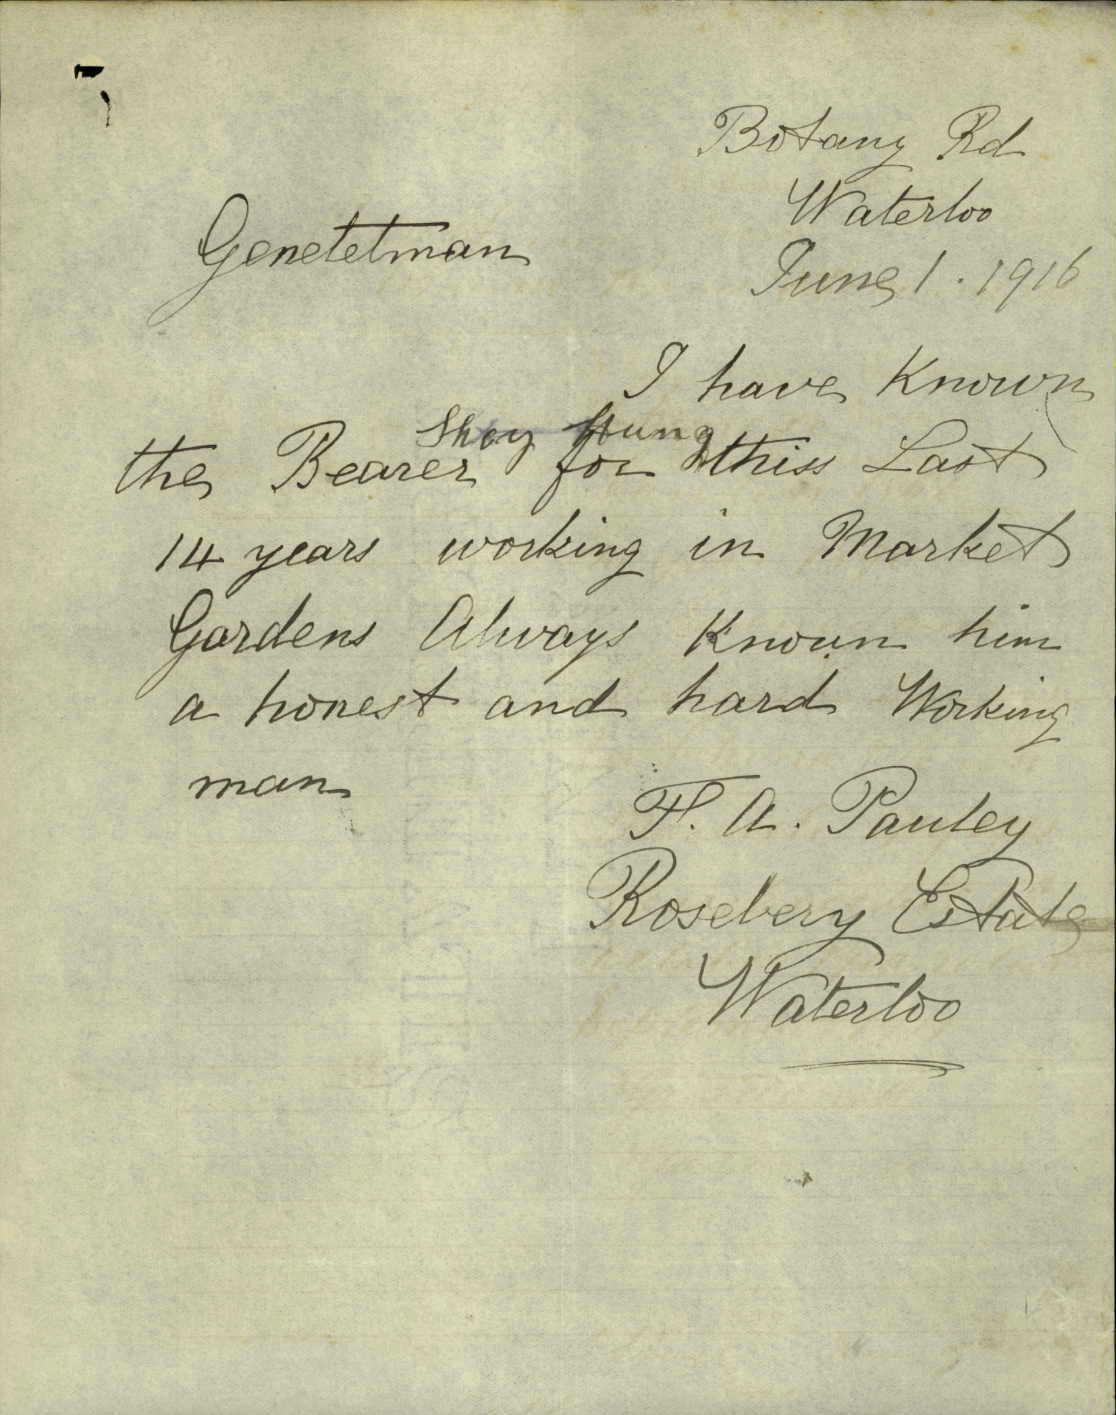 Botany Rd
Waterloo
June 1. 1916
Genetetman
I have Known
Shoy Hung
the Bearer for thiss Last
14 years working in Market
Gardens Always Known him
a honest and hard Working
man
F. A. Pauley
Rosebery Estate
Waterloo